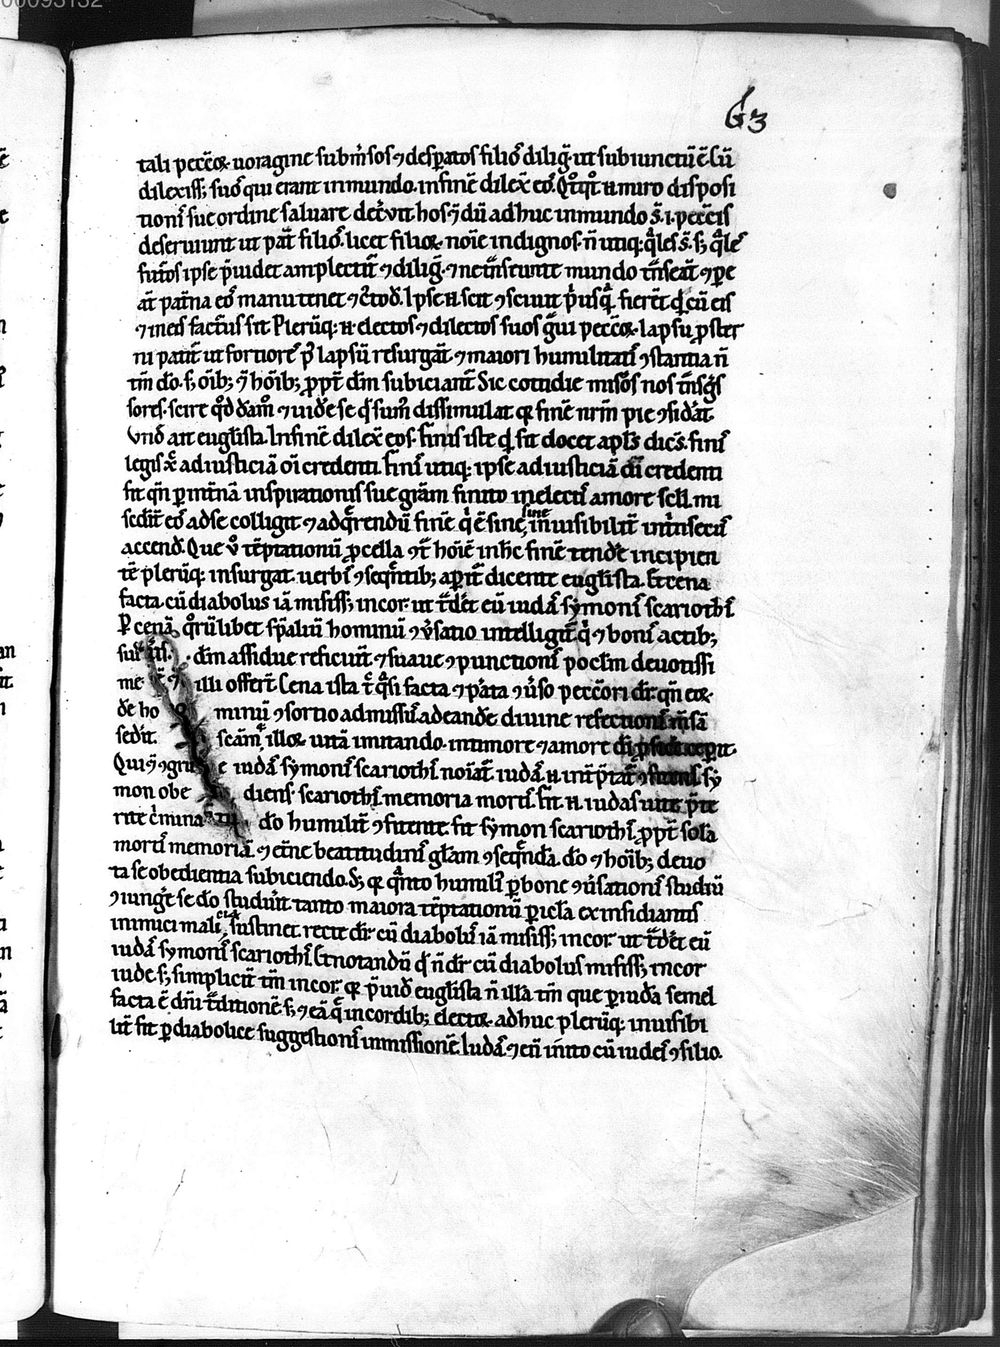 00095132
63
tali pecc̄oꝝ uoragine subm̄sos ⁊ desꝑatos filiō diliḡ. ut subiunctū ē. Cū
dilexiss; suōs qui erant in mundo. in finē dilex̄ eōs. Q̊tq̊t .n. miro disposi
tionis sue ordine saluare dec̄uit hos ⁊ dū adhuc in mundo .s̄. i. pecc̄is
deseruiunt ut pat̄ filiōs. licet filioꝝ noīe indignos. n̄ utiq: q̄les s̄. s; q̄les
fut̄os ipse p̄uidet amplectit̄ ⁊ diliḡ. ⁊ ne t̄nseunte mundo t̄nseāt ⁊ pe
āt pat̄na eōs manu tenet ⁊ c̄tod̄. Ipse .n. scit ⁊ sciuit p̄usq̄ fierēt qd̄ cū eis
⁊ in eis factus sit Plerūq: .n. electos ⁊ dilectos suos ḡui pecc̄oꝝ lapsu ꝓster
ni patit̄ ut fortiores p̄ lapsū resurgāt ⁊ maiori humilitatis ꝯstantia n̄
tm̄ dō. s; oīb; ⁊ hōib; ꝓpt̄ dm̄ subiciant̄ Sic cotidie mis̄os nos t̄nsḡs
sores. scire qd̄ dam̄ ⁊ uidēse q̄ sum̄ dissimulat ꝙ finē nrm̄ pie ꝯsidāt
Vnd̄ ait euḡlista. In finē dilex̄ eos. finis iste q̄ sit docet apls̄ dicēs. finis
legis x̄ ad iusticiā oī credenti. finis utiq: ipse ad iusticiā cūi credenti
fit qn̄ ꝑ int̄nā inspirationis sue gr̄am finito in electis amore sc̄li. mi
sedit̄ eōs ad se colligit ⁊ ad q̄rendū finē q̄ ē sine fine, inuisibilit̄ intinsecus
accend̄. Que v̊ tēptationū ꝓcella ꝯt̄ hoīē in hc̄ finē tendēte incipien
te plerūq: insurgat. uerbis ꝯseq̄ntib; aꝑit̄ dicente euḡlista. Et cena
facta. cū diabolus iā misiss; in cor. ut t̄det eū iudas symonis scariothis
Ꝑ cenā. q̄rūlibet sp̄aliū hominū ꝯv̄satio intelligit̄. q̄ ⁊ bonis actib;
suis dm̄ assidue reficiūt ⁊ suaue ꝯpunctionis poctm̄ deuotissi
me illi offert̄. Cena ista t̄ q̄si facta ⁊ p̄ata ꝯū̄so pecc̄ori dr̄. qn̄ eoꝝ
de ho minū ꝯsortio admissus adeande diuine refectionis m̄sā
sedit. sc̄am illoꝝ uitā imitando. in timore ⁊ amore
Qui ⁊ ꝯgru e iudas symonis scariothis noīat̄. iudas .n. int̄p̄tat̄ ꝯfitens sy
mon obe diens. scariothis memoria mortis. fit .n. iudas uite p̄te
rite c̄mina dō humilit̄ ꝯfitente. fit symon scariothis ꝓpt̄ sola
mortis memoriā. ⁊ et̄ne beatitudinis gl̄am ꝯseq̄nda. dō ⁊ hoīb; deuo
ta se obedientia subiciendo. S; ꝙ q̄nto humilis ꝑ bone ꝯū̄sationis studiū
ꝯiungēse dō studūit tanto maiora tēptationū ꝑicl̄a ex insidiantis
inimici malicia sustinet. recte dr̄. cū diabolus iā misiss; in cor ut t̄det eū
iudas symonis scariothis. Et notandū qd̄ n̄ dr̄ cū diabolus misiss; in cor
iude s; simplicit̄ tm̄ in cor. ꝙ p̄uid̄ euḡlista n̄ illā tm̄ que ꝑ iudā semel
facta ē dn̄i t̄ditionē. s; ⁊ eā q̄ in cordib; electoꝝ adhuc plerūq: inuisibi
lit̄ fit ꝑ diabolice suggestionis inmissionē. Iudas ⁊ en̄ in̄to cū iudeis ꝯsilio.